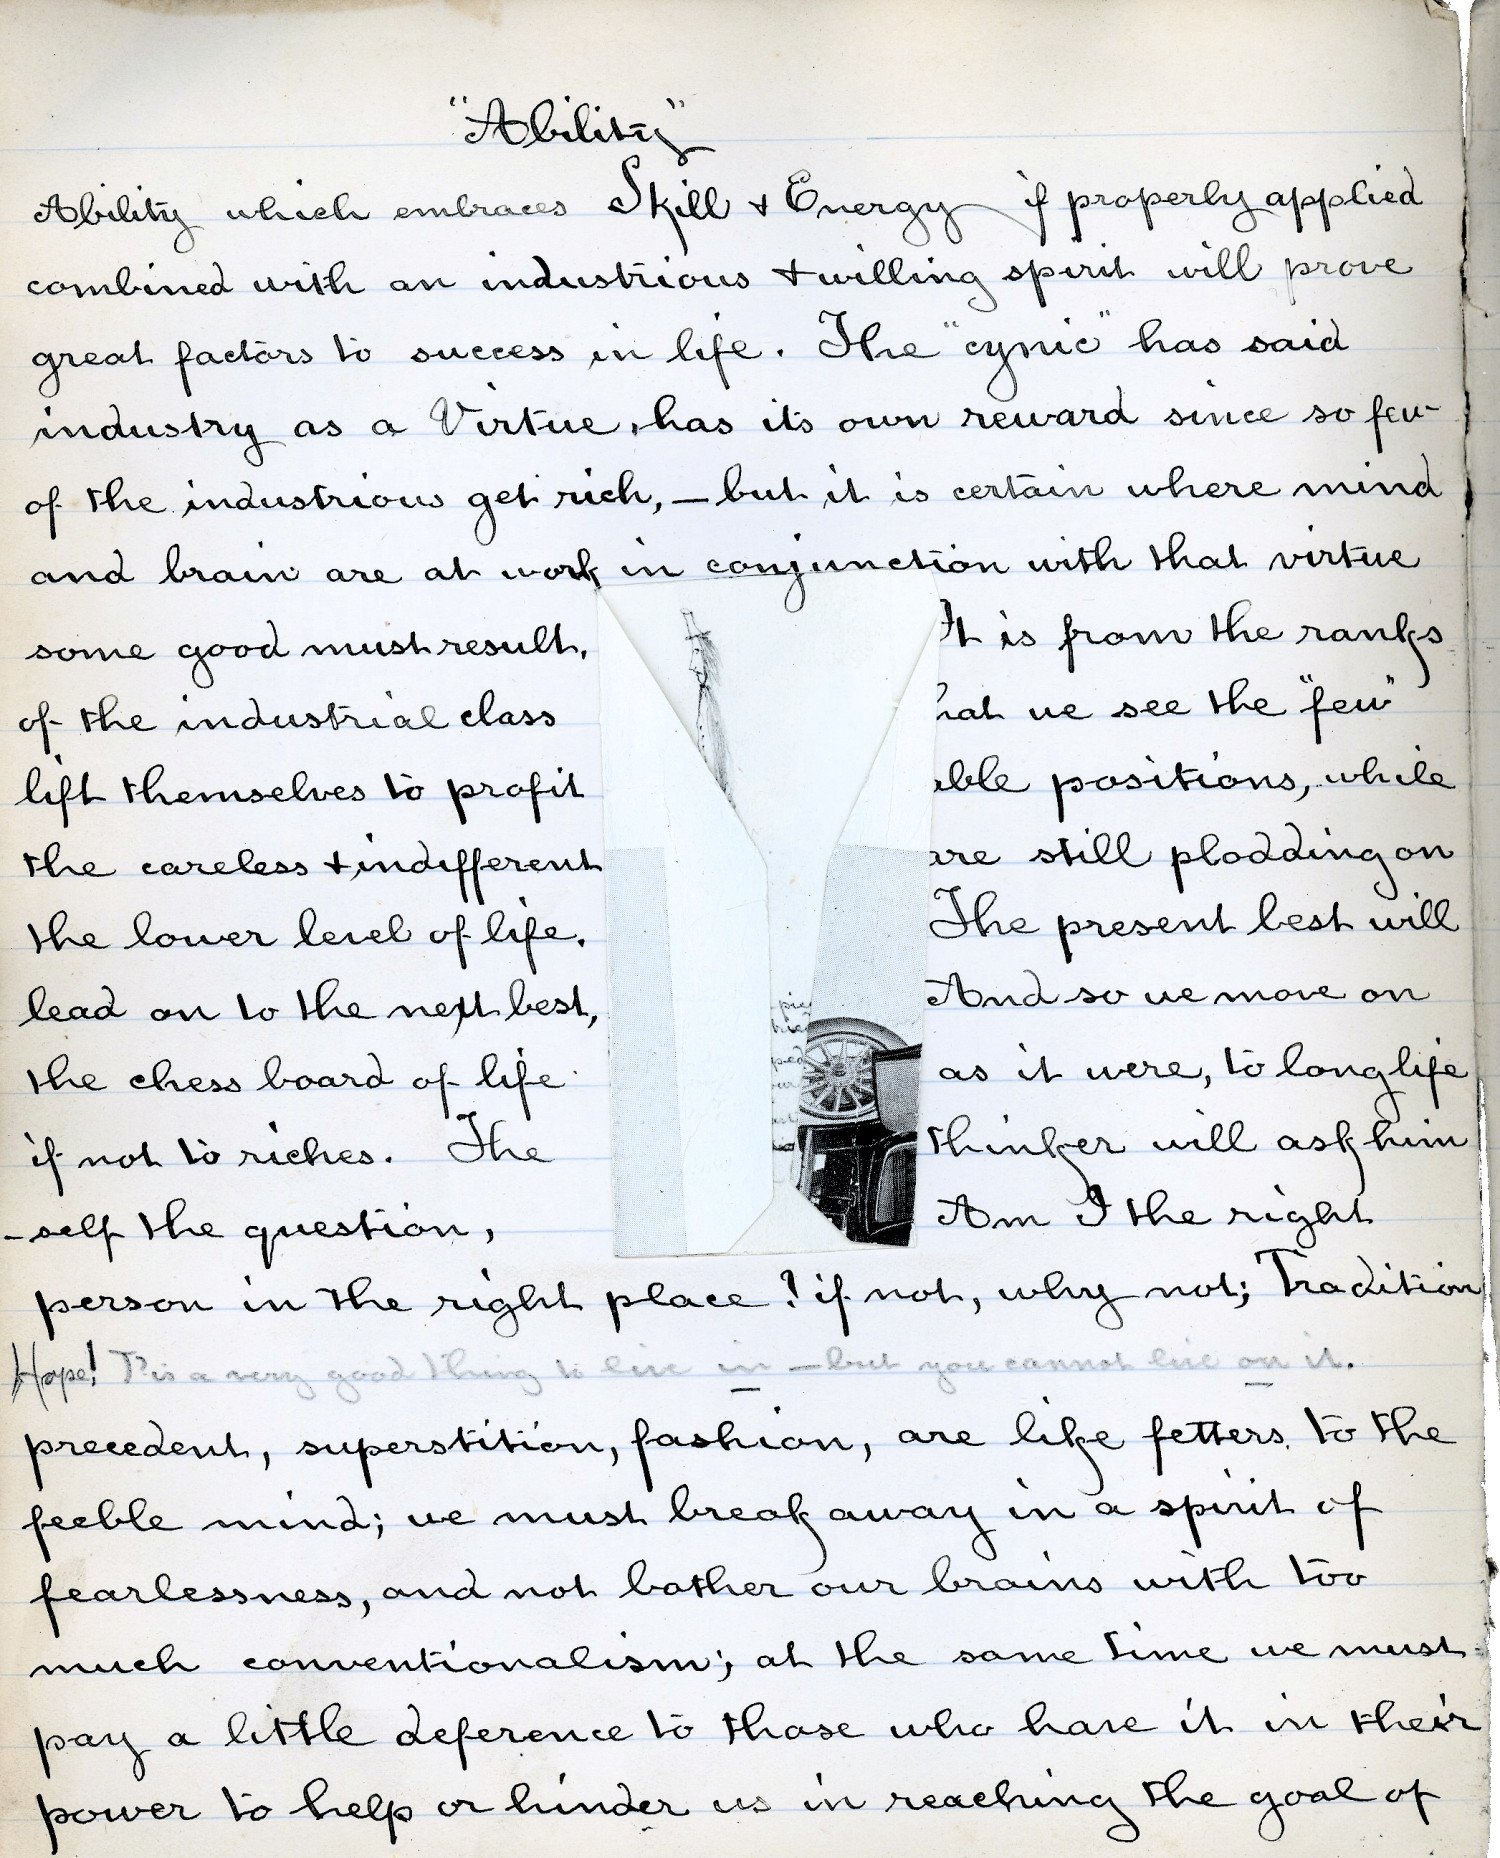 "Ability"
Ability which embraces Skill & Energy if properly applied
combined with an industrious & willing spirit will prove
great factors to success in life. The "cynic" has said
industry as a Virtue, has its own reward since so few
of the industrious get rich, – but it is certain where mind
and brain are at work in conjunction with that virtue
some good must result. It is from the ranks
of the industrial class hat we see the "few"
lift themselves to profit able positions, while
the careless & indifferent are still plodding on
the lower level of life. The present best will
lead on to the next best, And so we move on
the chess board of life as it were, to long life
if not to riches. The thinker will ask him
-self the question, Am I the right
person in the right place? if not, why not; Tradition
Hope! T'is a very good thing to live in – but you cannot live on it.
precedent, superstition, fashion, are like fetters to the
feeble mind; we must break away in a spirit of
fearlessness, and not bother our brains with too
much conventionalism; at the same time we must
pay a little deference to those who have it in their
power to help or hinder us in reaching the goal of